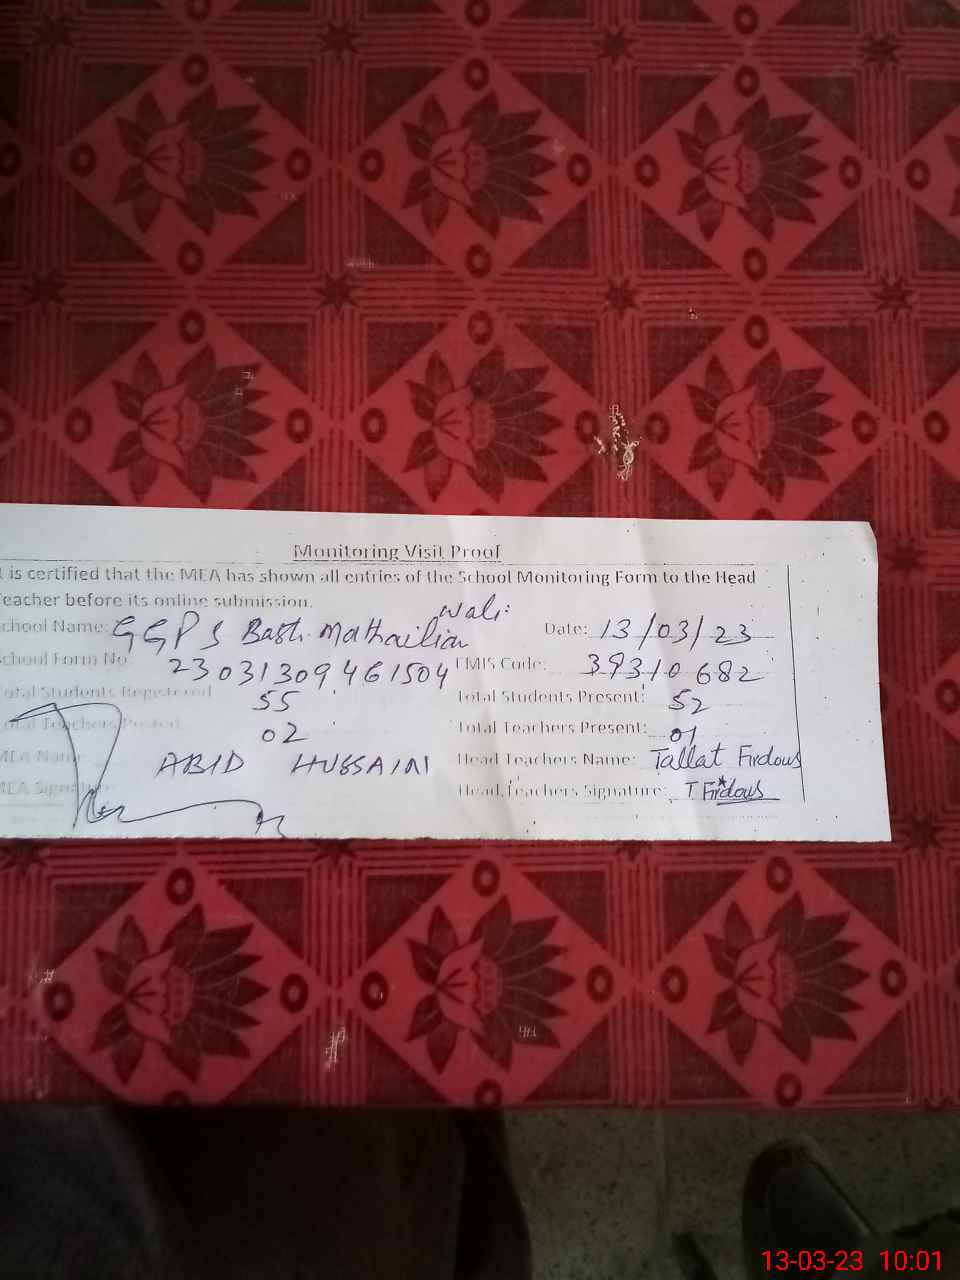 Monitoring Visit Proof
t is certified that the MEA has shown all entries of the School Monitoring Form to the Head
eacher before its online submission.
chool Name: GGPS Basti Mathailian Wali Date: 13/03/23
chool Form No: 23031309461504 EMIS Code: 39310682
otal Students Registered 55 Total Students Present: 52
otal Teachers Posted 02 Total Teachers Present: 01
MEA Name ABID HUSSAIN Head Teachers Name: Tallat Firdous
MEA Signature Head Teachers Signature: T Firdous
13-03-23 10:01